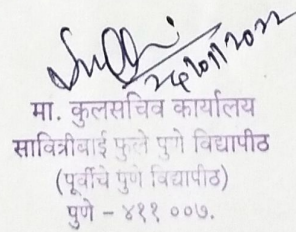 मा. कुलसचिव कार्यालय
सावित्रीबाई फुले पुणे विद्यापीठ
(पूर्वीचे पुणे विद्यापीठ)
पुणे - ४११ ००७.